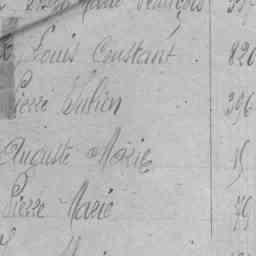 Marie François
Louis Constant . 820
Pierre Julien 306
Auguste Marie 15
Pierre Marie 79